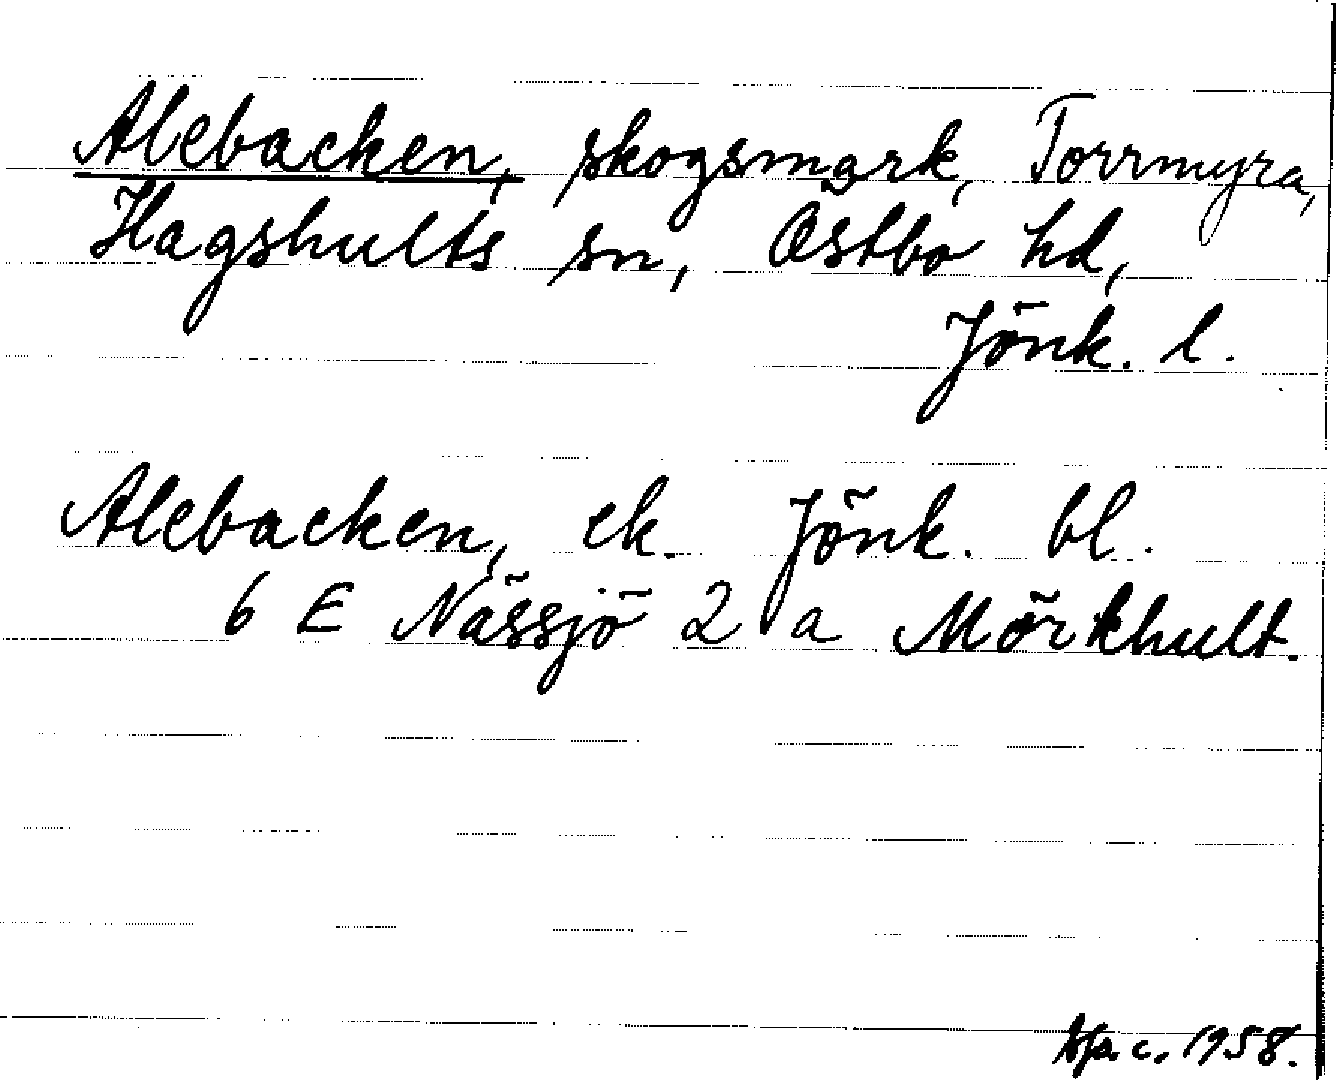 Alebacken, skogsmark, Torrmyra,
Hagshults sn, Östbo hd,
Jönk. l.
Alebacken, ek. Jönk. bl.
6 E Nässjö 2 a Mörkhult.
c. 1958.